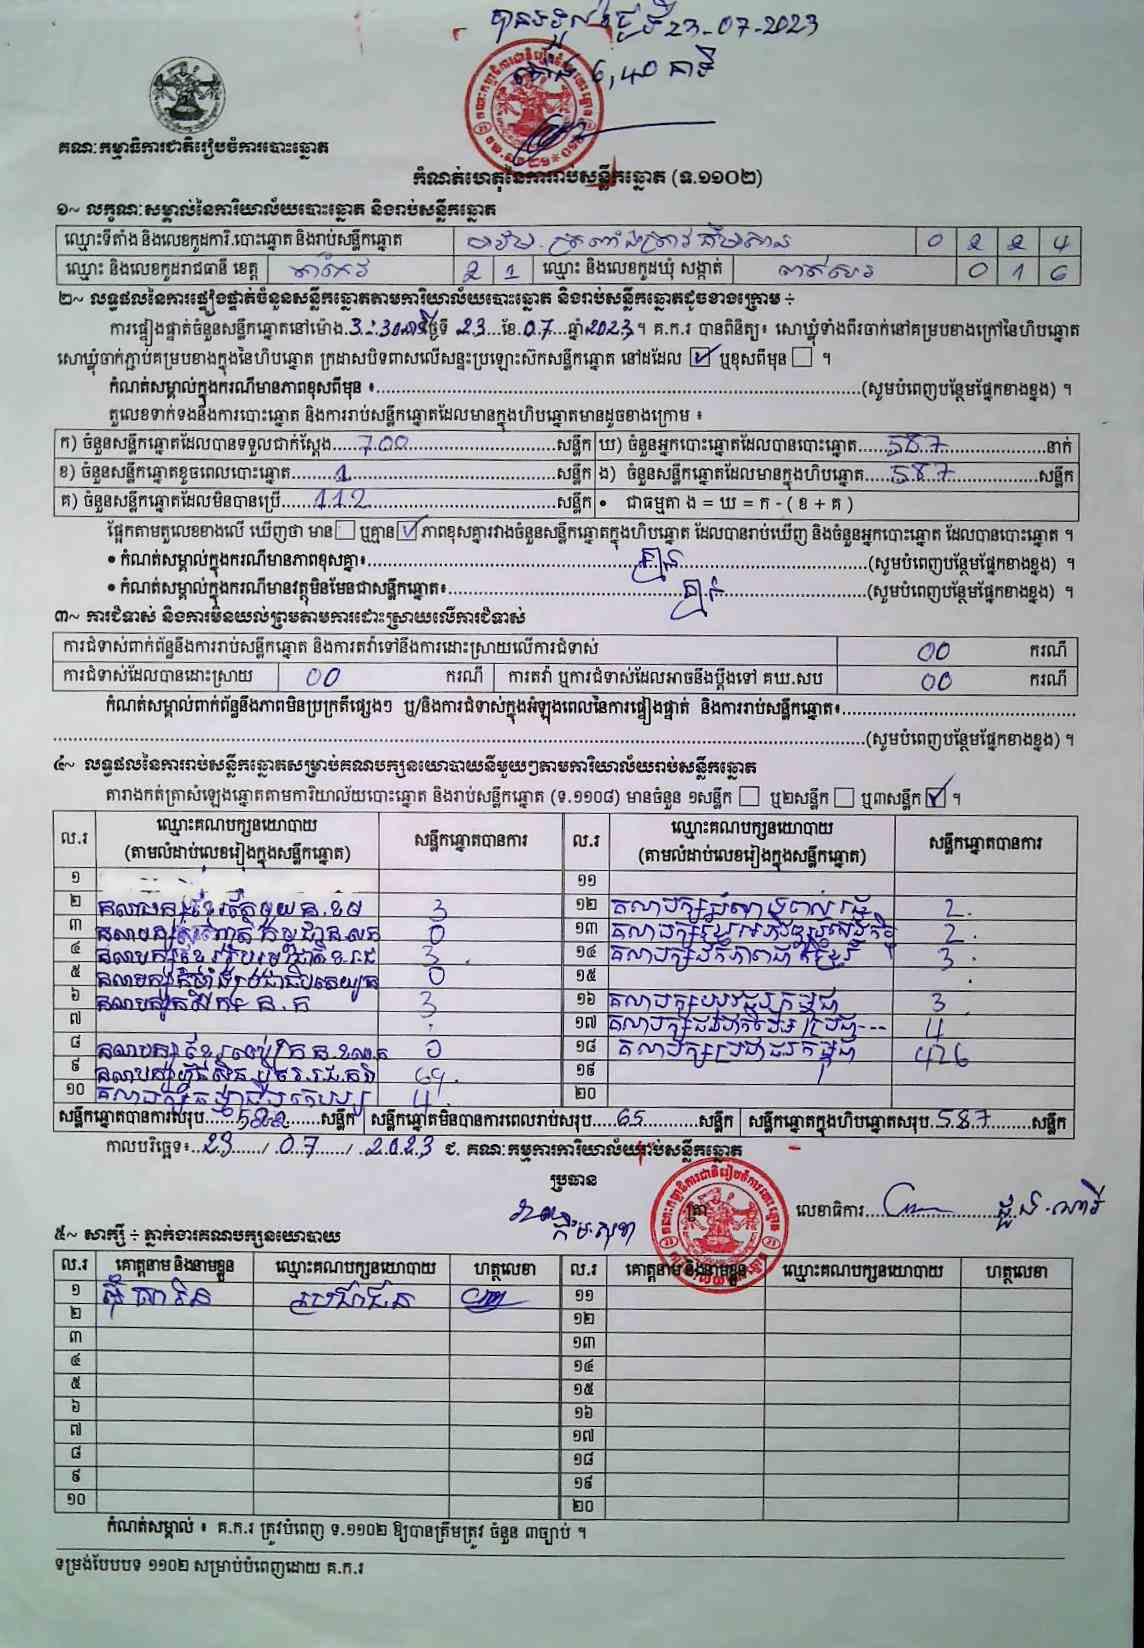 បានទទួលថ្ងៃទី 23-07-2023
ម៉ោង 6,40 នាទី
គណៈកម្មាធិការជាតិរៀបចំការបោះឆ្នោត
កំណត់ហេតុនៃការរាប់សន្លឹកឆ្នោត (ទ.១១០២)
១~ លក្ខណៈសម្គាល់នៃការិយាល័យបោះឆ្នោត និងរាប់សន្លឹកឆ្នោត
ឈ្មោះទីតាំង និងលេខកូដការិ.បោះឆ្នោត និងរាប់សន្លឹកឆ្នោត 0 2 2 4
ឈ្មោះ និងលេខកូដរាជធានី ខេត្ត តាកែវ 2 1 ឈ្មោះ និងលេខកូដឃុំ សង្កាត់ 0 1 6
២~ លទ្ធផលនៃការផ្ទៀងផ្ទាត់ចំនួនសន្លឹកឆ្នោតតាមការិយាល័យបោះឆ្នោត និងរាប់សន្លឹកឆ្នោតដូចខាងក្រោម ÷
ការផ្ទៀងផ្ទាត់ចំនួនសន្លឹកឆ្នោតនៅម៉ោង 3:30នាទី ថ្ងៃទី 23 ខែ 07 ឆ្នាំ 2023 ។ គ.ក.រ បានពិនិត្យ៖ សោឃ្លុំទាំងពីរចាក់នៅគម្របខាងក្រៅនៃហិបឆ្នោត
សោឃ្លុំចាក់ភ្ជាប់គម្របខាងក្នុងនៃហិបឆ្នោត ក្រដាសបិទពាសលើសន្ទះប្រឡោះស៊កសន្លឹកឆ្នោត នៅដដែល ☑ ឬខុសពីមុន ☐ ។
កំណត់សម្គាល់ក្នុងករណីមានភាពខុសពីមុន ៖ (សូមបំពេញបន្ថែមផ្នែកខាងខ្នង) ។
តួលេខទាក់ទងនឹងការបោះឆ្នោត និងការរាប់សន្លឹកឆ្នោតដែលមានក្នុងហិបឆ្នោតមានដូចខាងក្រោម ៖
ក) ចំនួនសន្លឹកឆ្នោតដែលបានទទួលជាក់ស្តែង 700 សន្លឹក ឃ) ចំនួនអ្នកបោះឆ្នោតដែលបានបោះឆ្នោត 587 នាក់
ខ) ចំនួនសន្លឹកឆ្នោតខូចពេលបោះឆ្នោត 1 សន្លឹក ង) ចំនួនសន្លឹកឆ្នោតដែលមានក្នុងហិបឆ្នោត 587 សន្លឹក
គ) ចំនួនសន្លឹកឆ្នោតដែលមិនបានប្រើ 112 សន្លឹក • ជាធម្មតា ង = ឃ = ក - ( ខ + គ )
ផ្អែកតាមតួលេខខាងលើ ឃើញថា មាន ☐ ឬគ្មាន ☑ ភាពខុសគ្នារវាងចំនួនសន្លឹកឆ្នោតក្នុងហិបឆ្នោត ដែលបានរាប់ឃើញ និងចំនួនអ្នកបោះឆ្នោត ដែលបានបោះឆ្នោត ។
• កំណត់សម្គាល់ក្នុងករណីមានភាពខុសគ្នា៖ គ្មាន (សូមបំពេញបន្ថែមផ្នែកខាងខ្នង) ។
• កំណត់សម្គាល់ក្នុងករណីមានវត្ថុមិនមែនជាសន្លឹកឆ្នោត៖ គ្មាន (សូមបំពេញបន្ថែមផ្នែកខាងខ្នង) ។
៣~ ការជំទាស់ និងការមិនយល់ព្រមតាមការដោះស្រាយលើការជំទាស់
ការជំទាស់ពាក់ព័ន្ធនឹងការរាប់សន្លឹកឆ្នោត និងការតវ៉ាទៅនឹងការដោះស្រាយលើការជំទាស់ 00 ករណី
ការជំទាស់ដែលបានដោះស្រាយ 00 ករណី ការតវ៉ា ឬការជំទាស់ដែលអាចនឹងប្តឹងទៅ គឃ.សប 00 ករណី
កំណត់សម្គាល់ពាក់ព័ន្ធនឹងភាពមិនប្រក្រតីផ្សេងៗ ឬ/និងការជំទាស់ក្នុងអំឡុងពេលនៃការផ្ទៀងផ្ទាត់ និងការរាប់សន្លឹកឆ្នោត៖
(សូមបំពេញបន្ថែមផ្នែកខាងខ្នង) ។
៤~ លទ្ធផលនៃការរាប់សន្លឹកឆ្នោតសម្រាប់គណបក្សនយោបាយនីមួយៗតាមការិយាល័យរាប់សន្លឹកឆ្នោត
តារាងកត់ត្រាសំឡេងឆ្នោតតាមការិយាល័យបោះឆ្នោត និងរាប់សន្លឹកឆ្នោត (ទ.១១០៨) មានចំនួន ១សន្លឹក ☐ ឬ២សន្លឹក ☐ ឬ៣សន្លឹក ☑ ។
ល.រ ឈ្មោះគណបក្សនយោបាយ (តាមលំដាប់លេខរៀងក្នុងសន្លឹកឆ្នោត) សន្លឹកឆ្នោតបានការ ល.រ ឈ្មោះគណបក្សនយោបាយ (តាមលំដាប់លេខរៀងក្នុងសន្លឹកឆ្នោត) សន្លឹកឆ្នោតបានការ
១ ១១
២ គណបក្សខ្មែរតែមួយ 3 ១២ គណបក្ស 2
៣ គណបក្ស 0 ១៣ គណបក្ស 2
៤ គណបក្សខ្មែររួបរួមជាតិ 3 ១៤ គណបក្ស 3
៥ គណបក្ស 0 ១៥
៦ គណបក្ស 3 ១៦ គណបក្សយុវជនកម្ពុជា 3
៧ ១៧ គណបក្ស 4
៨ គណបក្សខ្មែរ 0 ១៨ គណបក្សប្រជាជនកម្ពុជា 426
៩ គណបក្សហ៊្វុនស៊ិនប៉ិច 69 ១៩
១០ គណបក្ស 4 ២០
សន្លឹកឆ្នោតបានការសរុប 522 សន្លឹក សន្លឹកឆ្នោតមិនបានការពេលរាប់សរុប 65 សន្លឹក សន្លឹកឆ្នោតក្នុងហិបឆ្នោតសរុប 587 សន្លឹក
កាលបរិច្ឆេទ៖ 23 / 07 / 2023 ជ. គណៈកម្មការការិយាល័យរាប់សន្លឹកឆ្នោត
ប្រធាន
ត្រា លេខាធិការ
៥~ សាក្សី ÷ ភ្នាក់ងារគណបក្សនយោបាយ
ល.រ គោត្តនាម និងនាមខ្លួន ឈ្មោះគណបក្សនយោបាយ ហត្ថលេខា ល.រ គោត្តនាម និងនាមខ្លួន ឈ្មោះគណបក្សនយោបាយ ហត្ថលេខា
១ ប្រជាជន ១១
២ ១២
៣ ១៣
៤ ១៤
៥ ១៥
៦ ១៦
៧ ១៧
៨ ១៨
៩ ១៩
១០ ២០
កំណត់សម្គាល់ ៖ គ.ក.រ ត្រូវបំពេញ ទ.១១០២ ឱ្យបានត្រឹមត្រូវ ចំនួន ៣ច្បាប់ ។
ទម្រង់បែបបទ ១១០២ សម្រាប់បំពេញដោយ គ.ក.រ